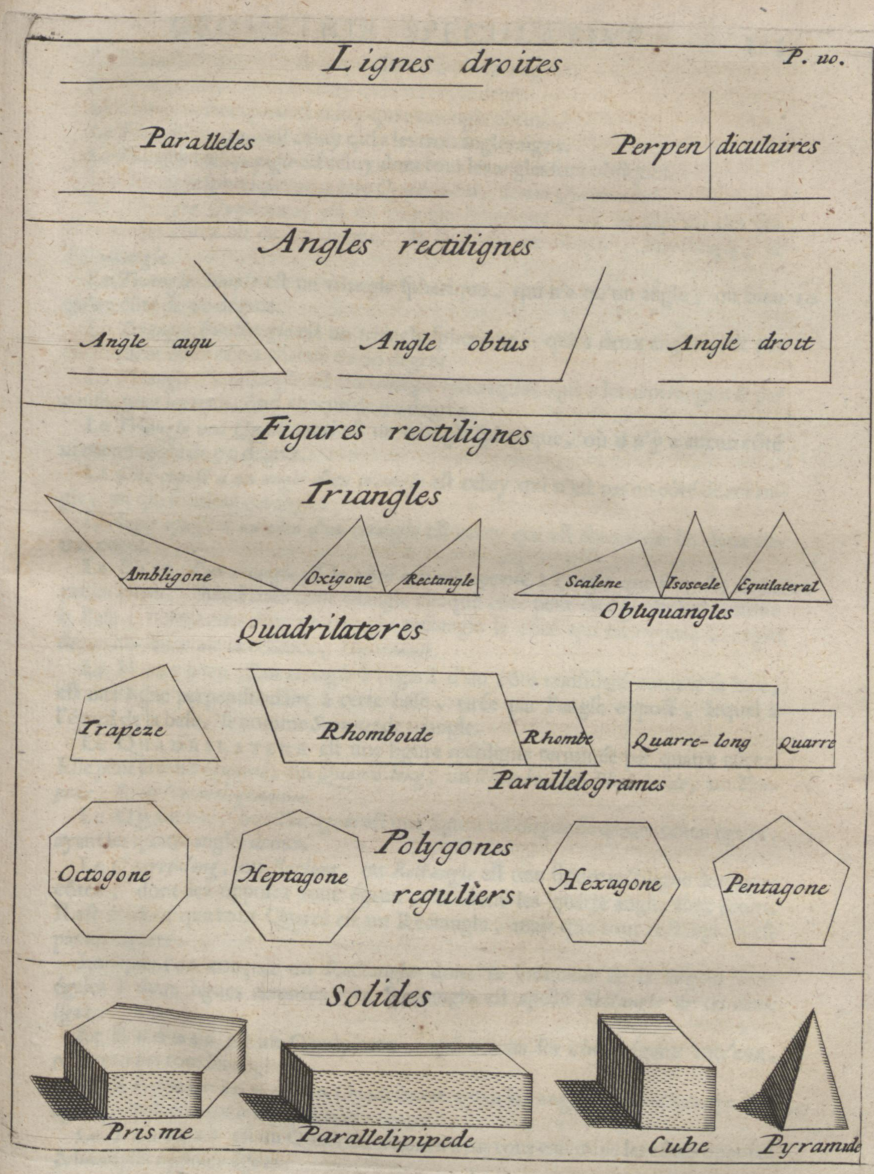 Lignes droites P. 110.
Paralleles Perpendiculaires
Angles rectilignes
Angle aigu Angle obtus Angle droit
Figures rectilignes
Triangles
Ambligone Oxigone Rectangle Scalene Isoscele Equilateral
Obliquangles
Quadrilateres
Trapeze Rhomboide Rhombe Quarre-long Quarre
Parallelogrames
Polygones
Octogone Heptagone reguliers Hexagone Pentagone
Solides
Prisme Parallelipipede Cube Pyramide